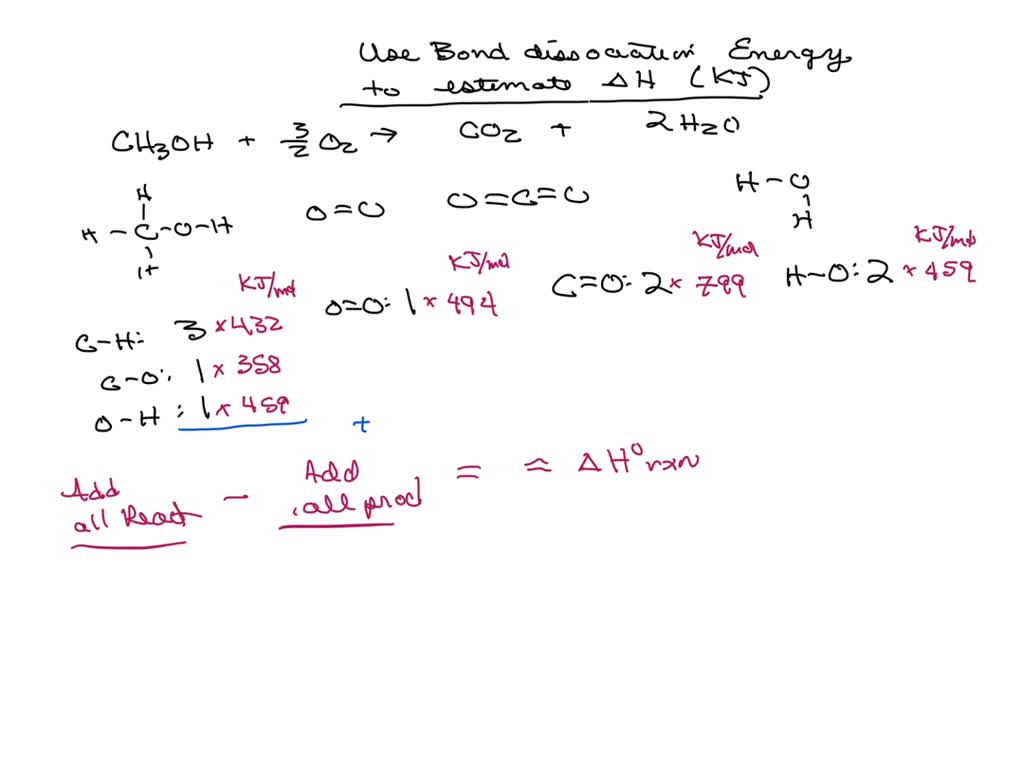 Use Bond dissociation Energy
to estimate ΔH (KJ)
CH3OH + 3/2 O2 → CO2 + 2H2O
H
H-C-O-H
H
O=O
O=C=O
H-O
H
KJ/mol
C-H: 3 × 432
C-O: 1 × 358
O-H: 1 × 459
KJ/mol
O=O: 1 × 494
KJ/mol
C=O: 2 × 799
KJ/mol
H-O: 2 × 459
+
Add all React - Add all prod = ≈ ΔH° rxn